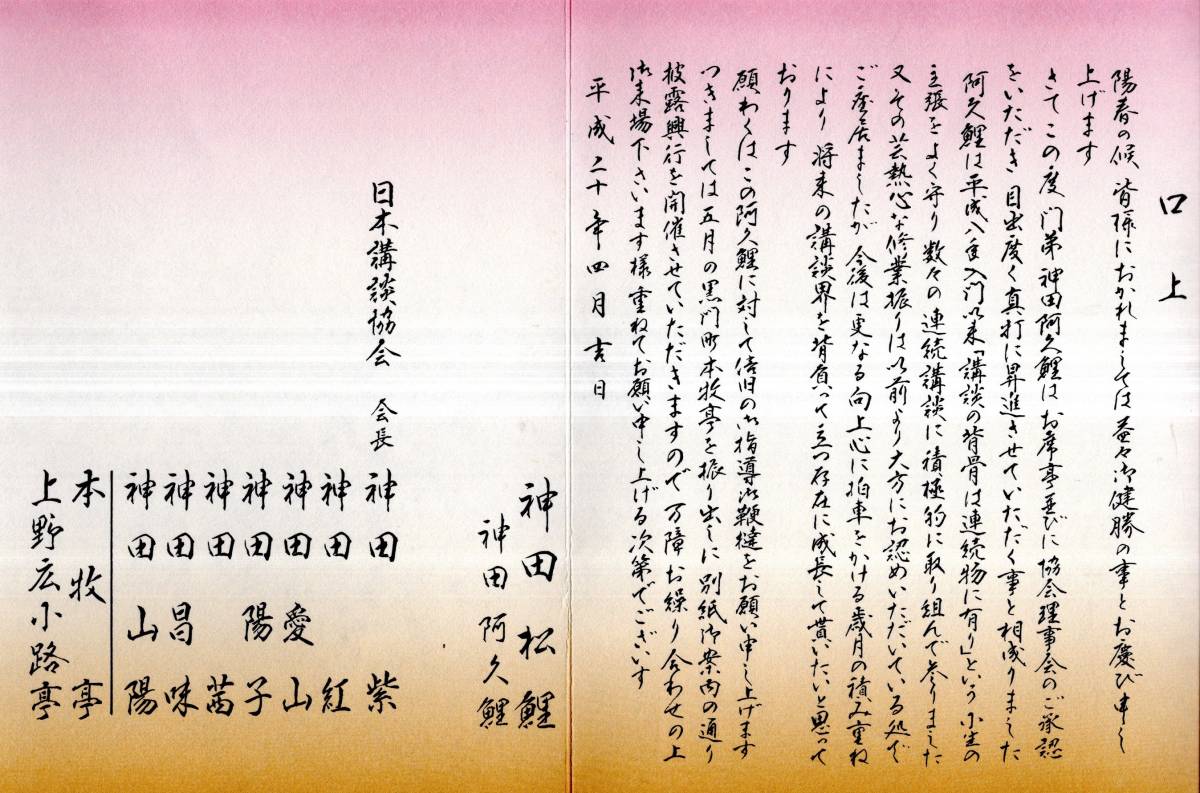 口上
陽春の候 皆様におかれましては益々御健勝の事とお慶び申し
上げます
さてこの度 門弟 神田阿久鯉はお席亭並びに協会理事会のご承認
をいただき 目出度く真打に昇進させていただく事と相成りました
阿久鯉は平成八年入門以来「講談の背骨は連続物に有り」という小生の
主張をよく守り数々の連続講談に積極的に取り組んで参りました
又その芸熱心な修業振りは以前より大方にお認めいただいている処で
ご座居ましたが 今後は更なる向上心に拍車をかける歳月の積み重ね
により 将来の講談界を背負って立つ存在に成長して貰いたいと思って
おります
願わくはこの阿久鯉に対して倍旧の御指導御鞭撻をお願い申し上げます
つきましては五月の黒門町本牧亭を振り出しに別紙御案内の通り
披露興行を開催させていただきますので 万障お繰り合わせの上
御来場下さいます様 重ねてお願い申し上げる次第でございいす
平成二十年四月吉日
神田松鯉
神田阿久鯉
日本講談協会 会長 神田紫
神田紅
神田愛山
神田陽子
神田茜
神田昌味
神田山陽
本牧亭
上野広小路亭